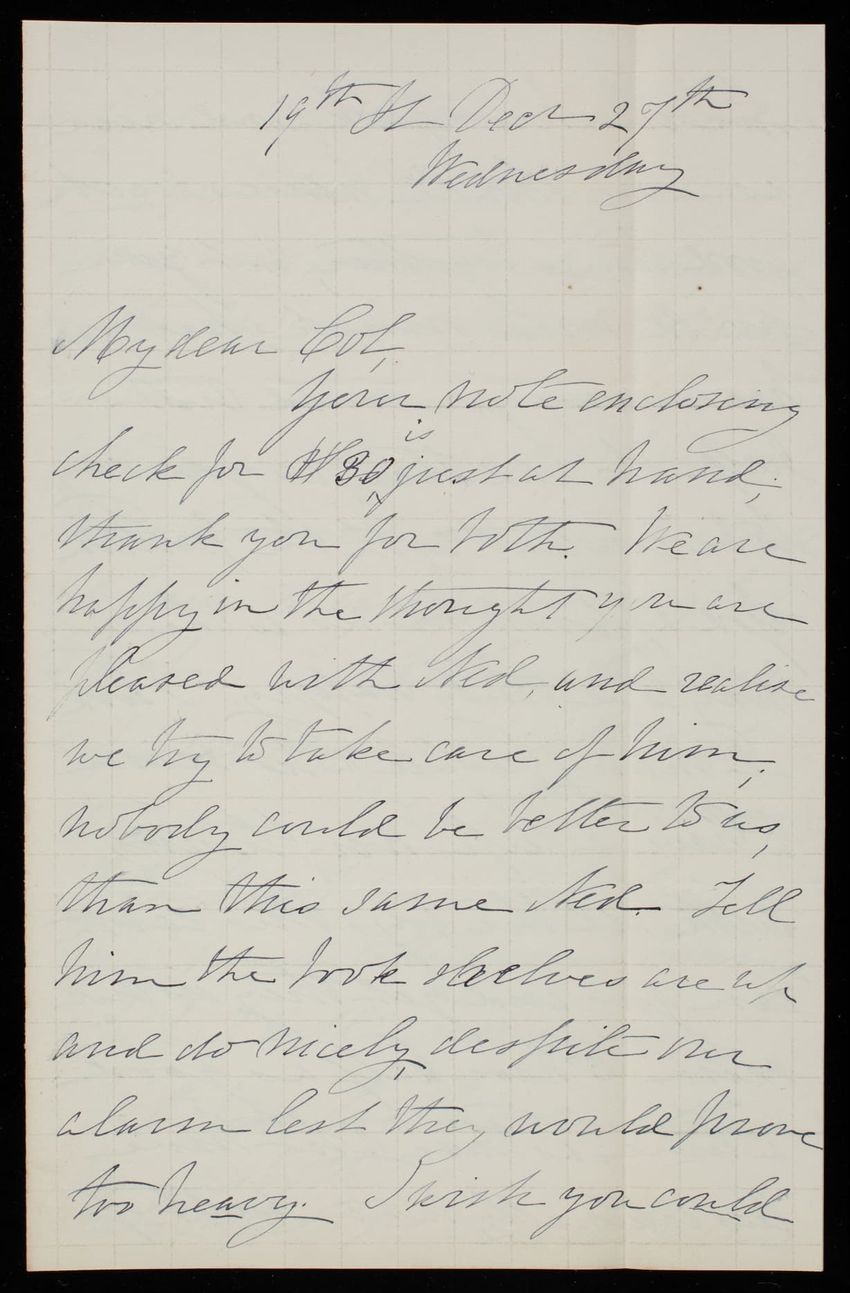 19th St Decr 27th
Wednesday
My dear Col,
Your note enclosing
check for $30 is just at hand,
thank you for both. We are
happy in the thought you are
pleased with Ned, and realise
we try to take care of him,
nobody could be better to us,
than this same Ned. Tell
him the book shelves are up
and do nicely, despite our
alarm lest they would prove
too heavy. I wish you could